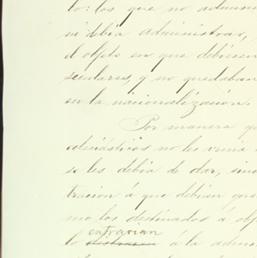 to: los que no adminis
ni debia administrar,
el objeto en que debiesen
seculares, y no quedaban
en la nacionalización.
Por manera que
eclesiásticos no les venia
se les debia de dar, sinó
tracion á que debian que
mo los destinados á obj
entrarian
lo á la admi